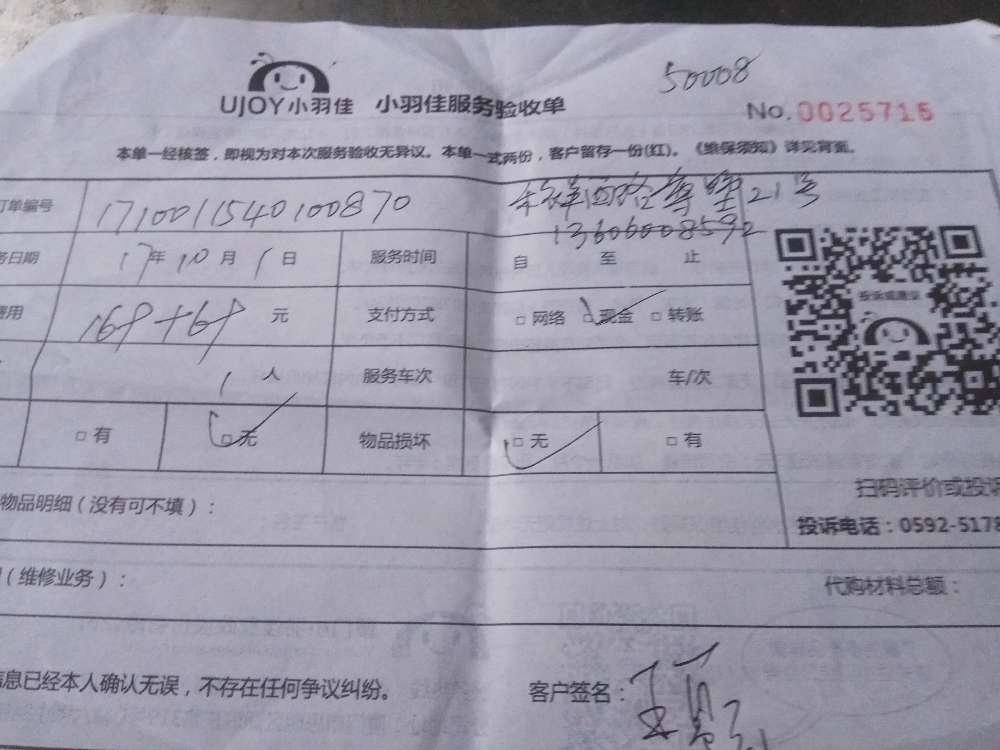 50008
UJOY小羽佳 小羽佳服务验收单
No.0025716
本单一经核签，即视为对本次服务验收无异议。本单一式两份，客户留存一份(红)。《维保须知》详见背面。
订单编号 1710011540100870
21号
13606008592
务日期 17年10月1日 服务时间 自 至 止
费用 168+68 元 支付方式 □网络 □现金 □转账
1人 服务车次 车/次
□有 □无 物品损坏 □无 □有
投诉或建议
扫码评价或投诉
投诉电话：0592-5178
物品明细（没有可不填）：
（维修业务）： 代购材料总额：
信息已经本人确认无误，不存在任何争议纠纷。 客户签名：